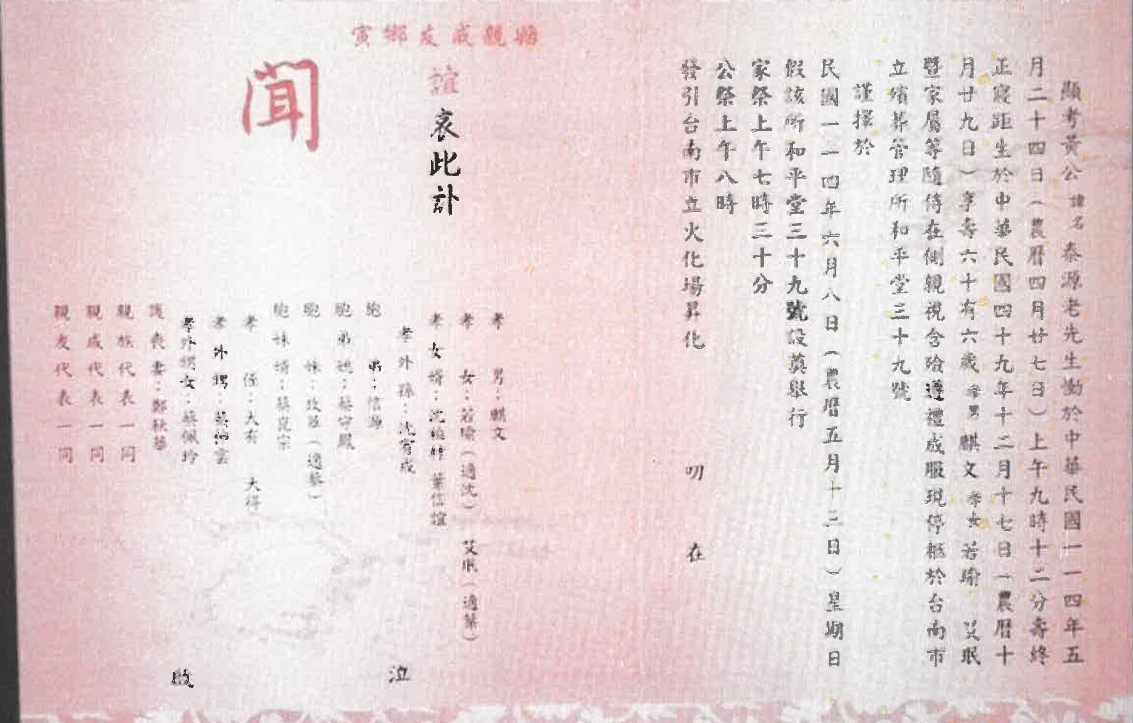 顯考黃公諱名泰源老先生慟於中華民國一一四年五
月二十四日(農曆四月廿七日)上午九時十二分壽終
正寢距生於中華民國四十九年十二月十七日(農曆十
月廿九日)享壽六十有六歲孝男麒文孝女若瑜艾珉
暨家屬等隨侍在側親視含殮遵禮成服現停柩於台南市
立殯葬管理所和平堂三十九號
謹擇於
民國一一四年六月八日(農曆五月十三日)星期日
假該所和平堂三十九號設奠舉行
家祭上午七時三十分
公祭上午八時
發引台南市立火化場昇化
叨 在
姻親戚友鄉寅
誼
哀此訃
聞
孝 男:麒文
孝 女:若瑜(適沈) 艾珉(適葉)
孝女婿:沈 葉信誼
孝外孫:沈宥成
胞 弟:信源
胞弟媳:蔡守鳳
胞 妹:玫 (適蔡)
胞妹婿:蔡崑宗
孝 侄:大有 大得
孝外甥:蔡 雲
孝外甥女:蔡佩玲
護喪妻:鄭秋華
親族代表一同
親戚代表一同
親友代表一同
泣
啟